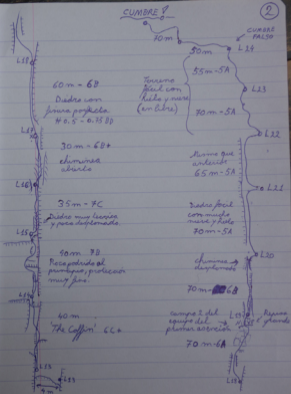 CUMBRE!
2
70m
CUMBRE
FALSO
50m
L24
55m-5A
Terreno
fácil con
(en libre)
L23
70m-5A
L22
Mismo que
anterior
65m-5A
L21
Diedro fácil
con mucho
nieve y hielo
70m-5A
L20
chimenea
desplomada
70m-6B
L19
campo 2 del
equipo del
primer ascenso
Repisa
grande
70m-6A
L18
60m-6B
Diedro con
fisura perfecta
#0.5-0.75BD
L17
30m-6B+
chimenea
abierta
L16
35m-7C
Diedro muy
y poco desplomado
L15
40m 7B
Roca podrida al
principio, protección
muy fina.
L14
40m
"The Coffin" 6C+
L13
L13